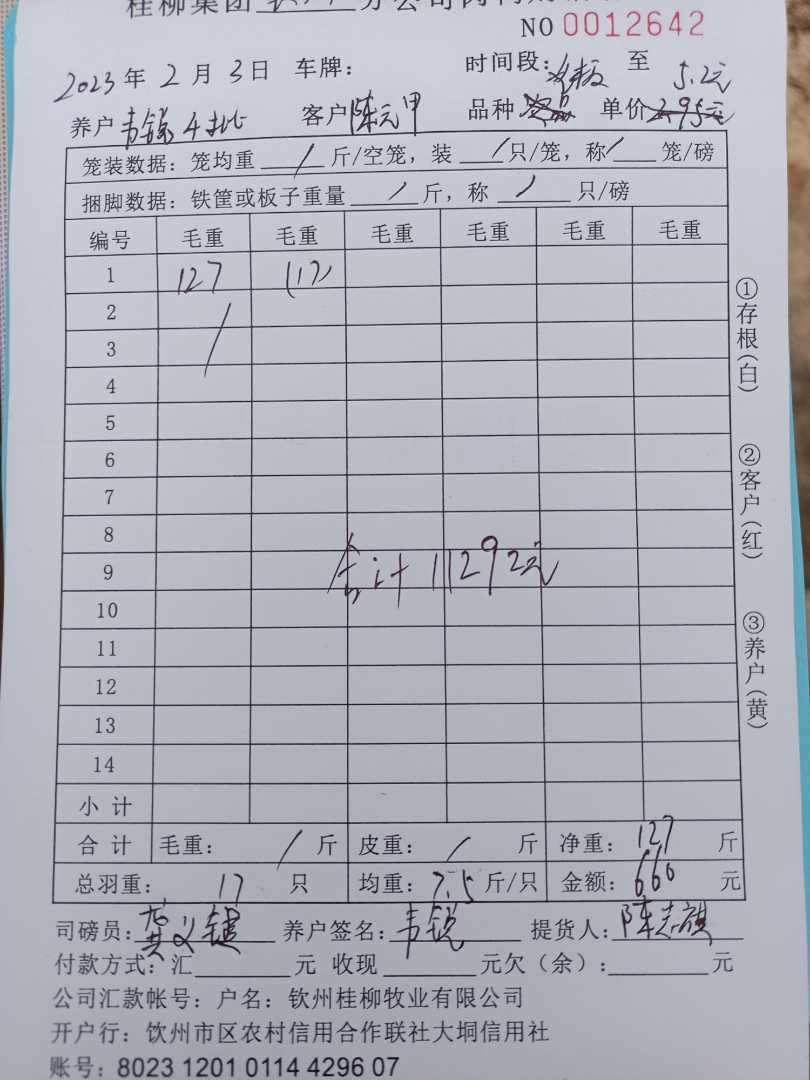 桂柳集团
NO 0012642
2023年2月3日 车牌： 时间段： 至 5.2元
养户 韦锐4批 客户 陈元甲 品种 单价 3.95元
笼装数据：笼均重 / 斤/空笼，装 / 只/笼，称 / 笼/磅
捆脚数据：铁筐或板子重量 / 斤，称 / 只/磅
编号 毛重 毛重 毛重 毛重 毛重 毛重
1 127 (17)
2 /
3
4
5
6
7
8
9 合计11292元
10
11
12
13
14
小计
合计 毛重： / 斤 皮重： / 斤 净重：127 斤
总羽重： 17 只 均重：7.5 斤/只 金额：660 元
司磅员：龚义键 养户签名：韦锐 提货人：陈志祺
付款方式：汇 元 收现 元欠（余）： 元
公司汇款帐号：户名：钦州桂柳牧业有限公司
开户行：钦州市区农村信用合作联社大垌信用社
账号：8023 1201 0114 4296 07
①存根（白）
②客户（红）
③养户（黄）